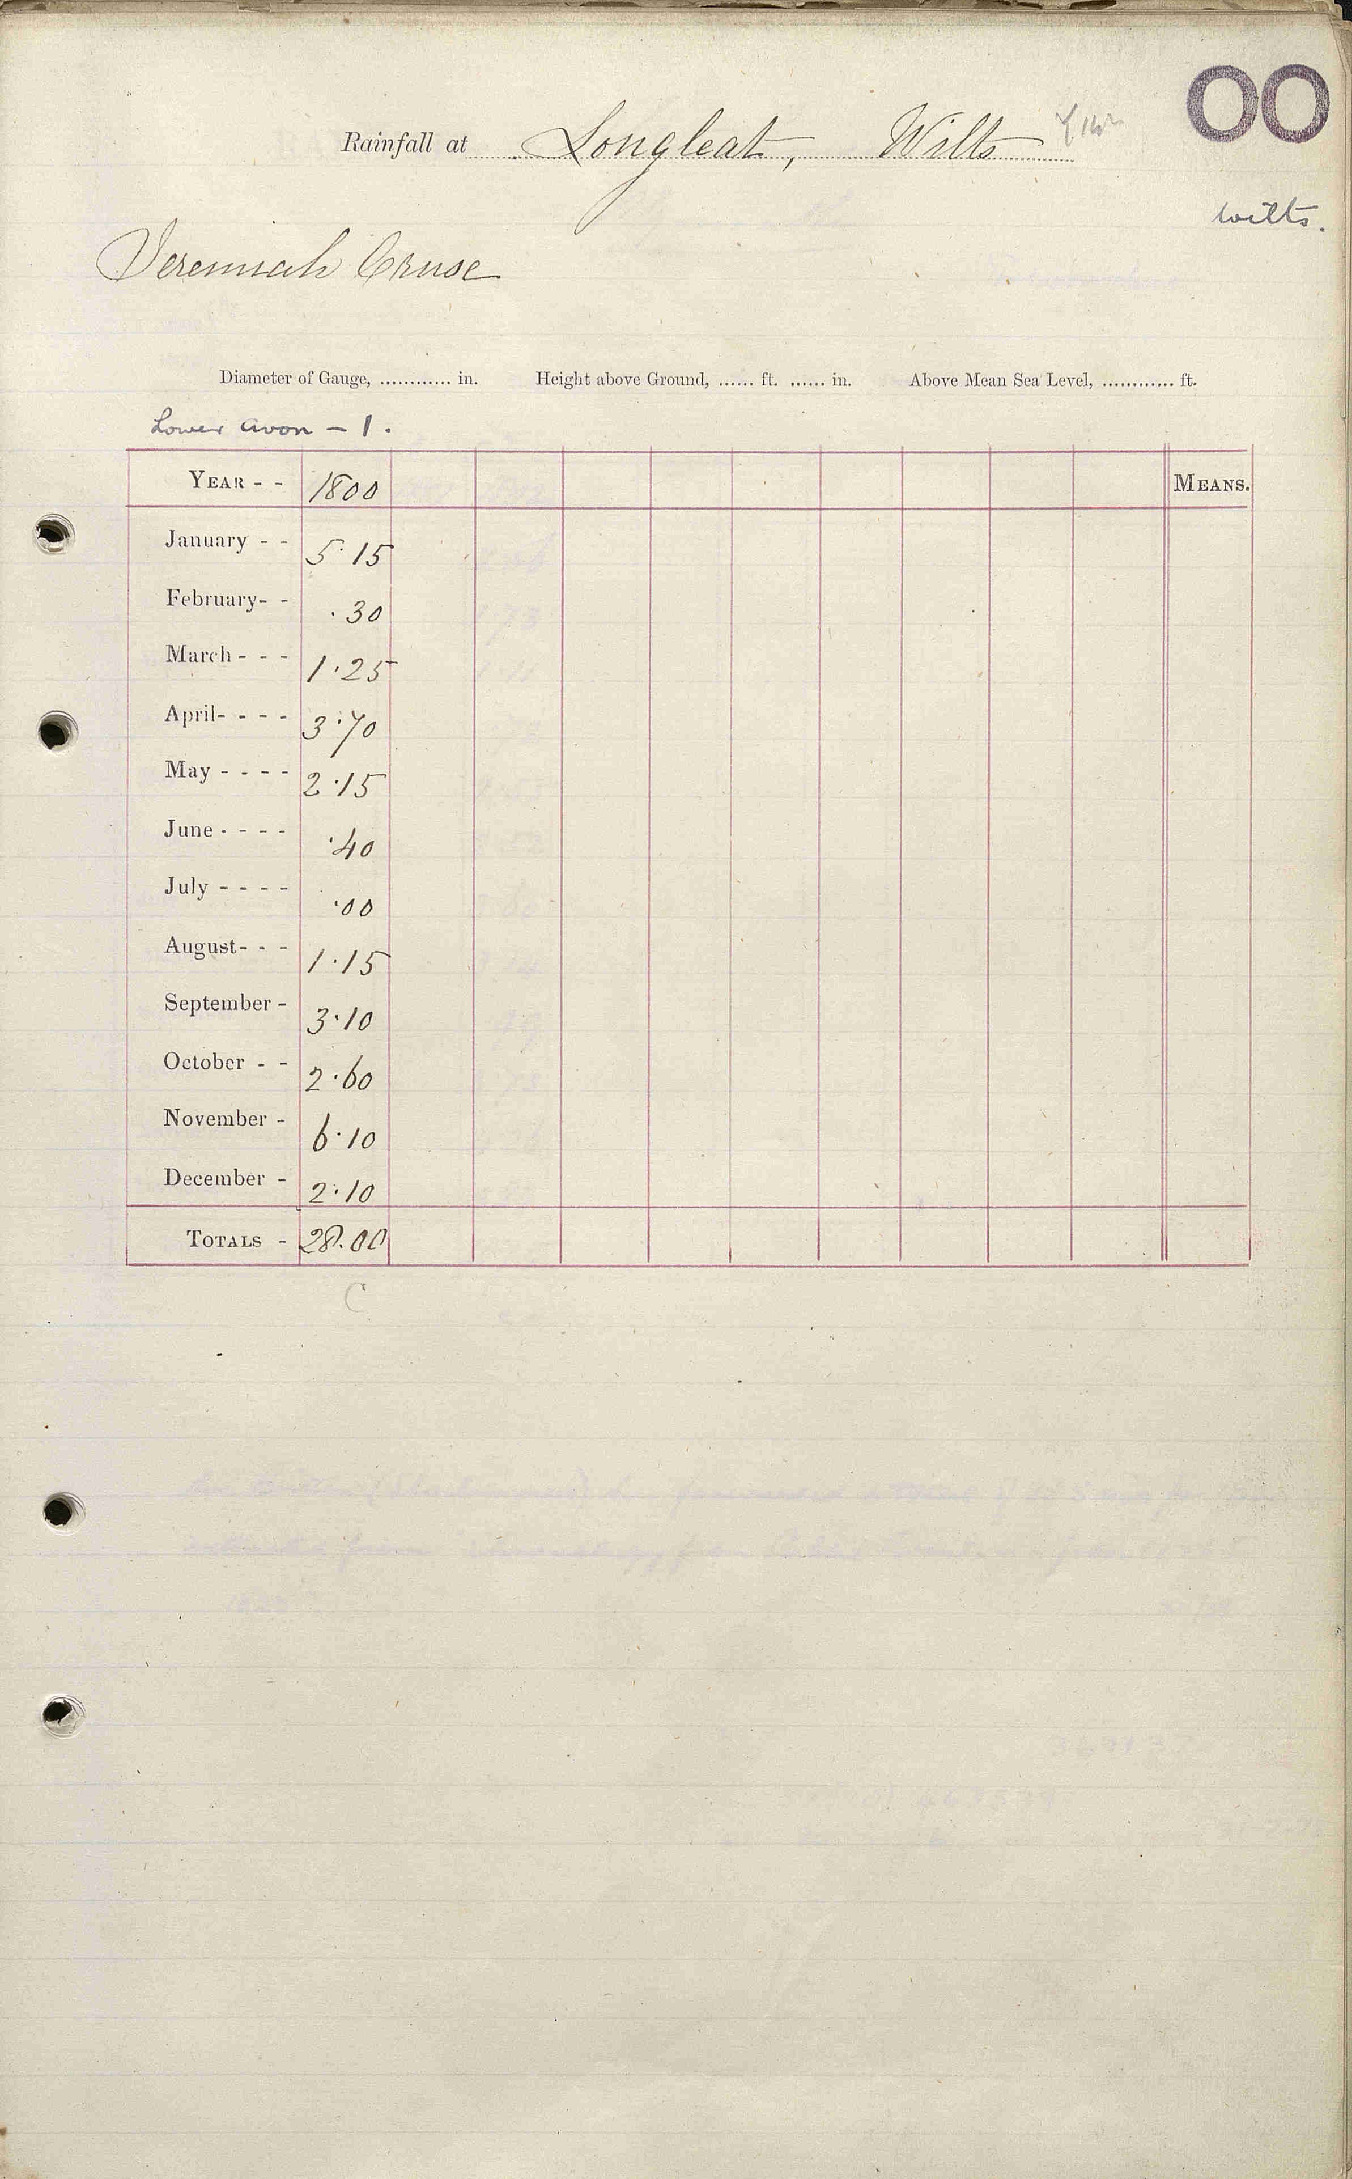 OO
Rainfall at Longleat, Wilts
Wilts.
Jeremiah Cruse
Diameter of Gauge, ............ in. Height above Ground, ...... ft. ...... in. Above Mean Sea Level, ............ ft.
Lower Avon - 1.
YEAR - - 1800 MEANS.
January - - 5.15
February- - .30
March - - - 1.25
April- - - - 3.70
May - - - - 2.15
June - - - - .40
July - - - - .00
August- - - 1.15
September - 3.10
October - - 2.60
November - 6.10
December - 2.10
TOTALS - 28.00
C